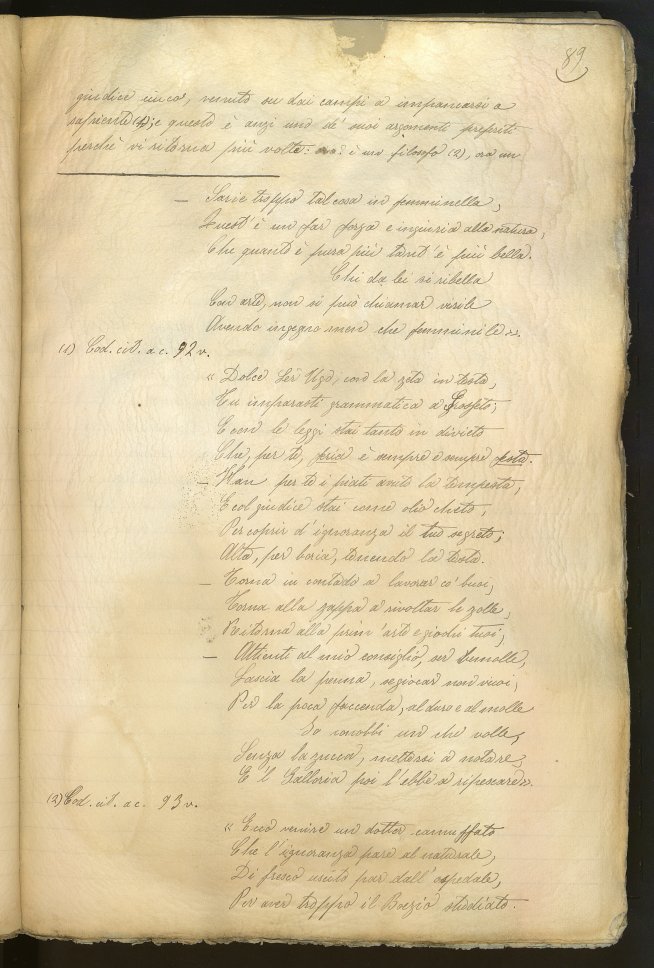 89
giudice unico, venuto su dai campi a impancarsi a
sapiente (1); e questo è anzi uno de' suoi argomenti preferiti
perchè vi ritorna più volte: ora è un filosofo (2), ora un
— Saria troppo tal cosa in femminella;
Quest' è un far forza e ingiuria alla natura,
Che quanto è pura più tant' è più bella.
Chi da lei si ribella
Con arte, non si può chiamar virile
Avendo ingegno men che femminile».
(1) Cod. cit. a c. 92 v.
« Dolce Ser Ugo, con la zeta in testa,
Tu imparasti grammatica a Grosseto,
E con le leggi stai tanto in divieto
Che, per te, feria è sempre e sempre festa.
— Han per te i piati avuto la tempesta,
E col giudice stai come olio cheto,
Per coprir d'ignoranza il tuo segreto,
Alta, per boria, tenendo la testa.
— Torna in contado a lavorar co' buoi,
Torna alla zappa a rivoltar le zolle,
Ritorna alla prim' arte e giochi tuoi,
— Attienti al mio consiglio, ser bemolle,
Lascia la penna, se giocar non vuoi,
Per la poca faccenda, al duro e al molle
Io conobbi un che volle,
Senza la zucca, mettersi a notare,
E 'l Galloria poi l'ebbe a ripescare».
(2) Cod. cit. a c. 93 v.
« Ecco venire un dottor camuffato
Che l'ignoranza pare al naturale,
Di fresco uscito par dall' ospedale,
Per aver troppo il Boezio studiato.